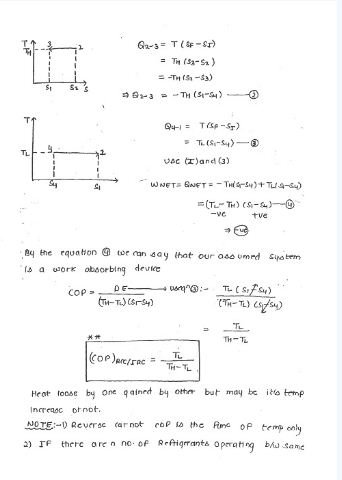 T
TH
3
2
S1
S2
S
Q2-3 = T (SF - SI)
= TH (S3 - S2)
= -TH (S1 - S3)
⇒ Q2-3 = -TH (S1 - S4) — ②
T
TL
4
S4
S1
Q4-1 = T (SF - SI)
= TL (S1 - S4) — ③
use (I) and (3)
WNET = QNET = -TH(S1-S4) + TL(S1-S4)
= (TL - TH) (S1 - S4) — ④
-ve +ve
⇒ -ve
By the equation ④ we can say that our assumed system
is a work absorbing device
COP = DE / (TH-TL)(S1-S4) → use qn ③:- TL (S1-S4) / (TH-TL) (S1-S4)
= TL / TH-TL
**
(COP)RRC/IRC = TL / TH-TL
Heat loose by one gained by other but may be it's temp
increase or not.
NOTE:-1) Reverse carnot COP is the func of temp only
2) IF there are n no. of Refrigerants operating b/w same